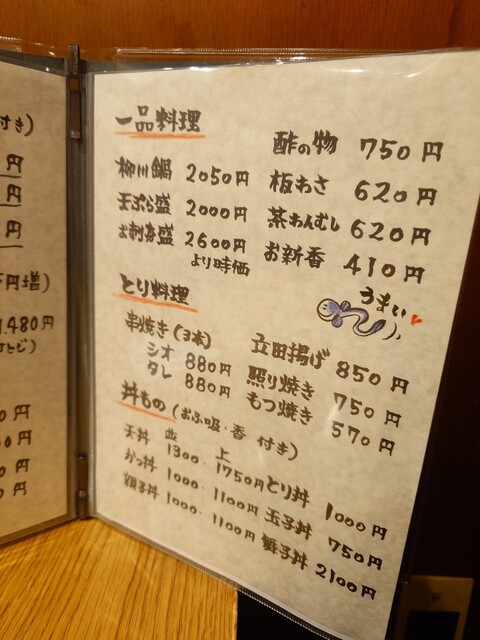 付き)
円
円
円
円増)
1,480円
ひとじ)
0円
0円
0円
0円
一品料理
柳川鍋 2050円
天ぷら盛 2000円
お刺身盛 2600円
より時価
酢の物 750円
板わさ 620円
茶わんむし 620円
お新香 410円
うまい
とり料理
串焼き(3本)
シオ 880円
タレ 880円
立田揚げ 850円
照り焼き 750円
もつ焼き 570円
丼もの(お吸・香 付き)
並 上
天丼 1300・1750円
かつ丼 1000・1100円
親子丼 1000・1100円
とり丼 1000円
玉子丼 750円
舞子丼 2100円